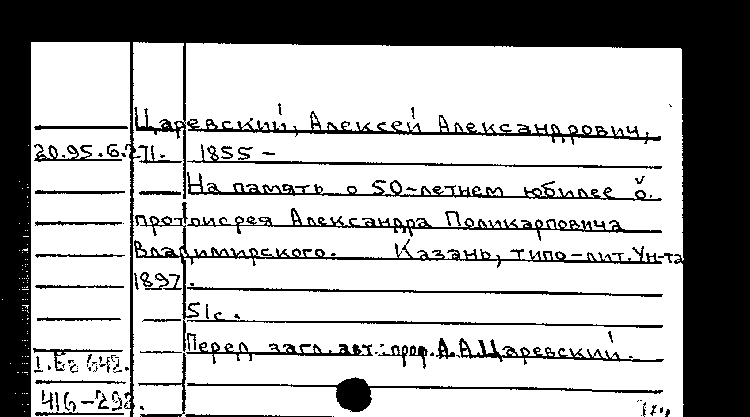 Царевский, Алексей Александрович,
20.95.6.271. 1855 –
На память о 50-летнем юбилее о.
протоиерея Александра Поликарповича
Владимирского. Казань, типо-лит. Ун-та
1897.
51с.
Перед загл. авт.: проф. А.А.Царевский.
416-292.